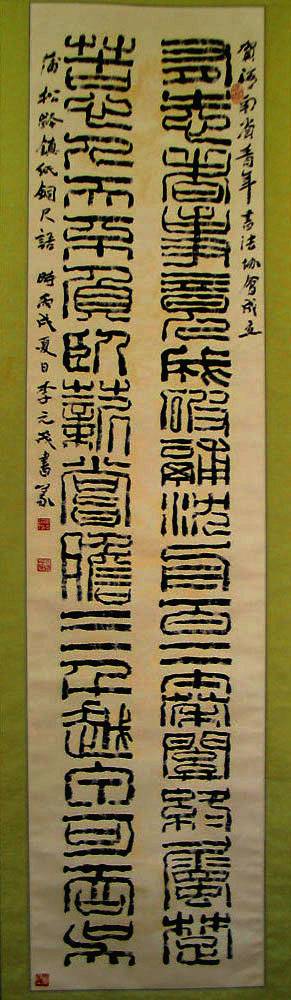 賀河南省青年書法協會成立
有志者事竟成破鬴沈舟百二秦關終屬楚
苦心人天不負臥薪嘗膽三千越甲可吞吳
蒲松齡鎮紙銅尺語 時丙戌夏日李元茂書篆